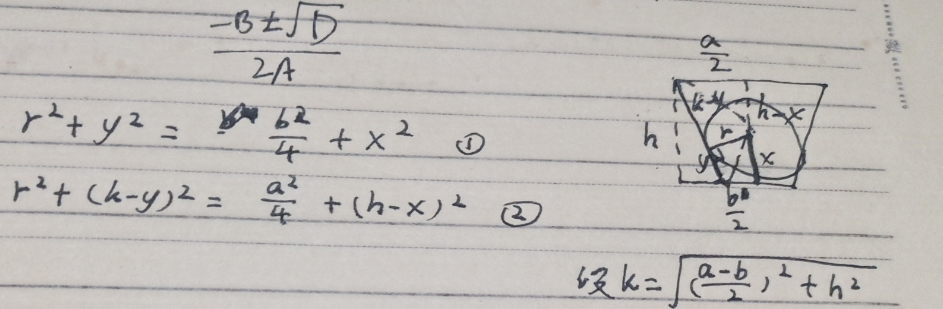 -B±√D
2A
r²+y² = b²/4 + x² ①
r²+(k-y)² = a²/4 + (h-x)² ②
a/2
k-y
h-x
h
r
y
x
b/2
设 k=√((a-b)/2)²+h²